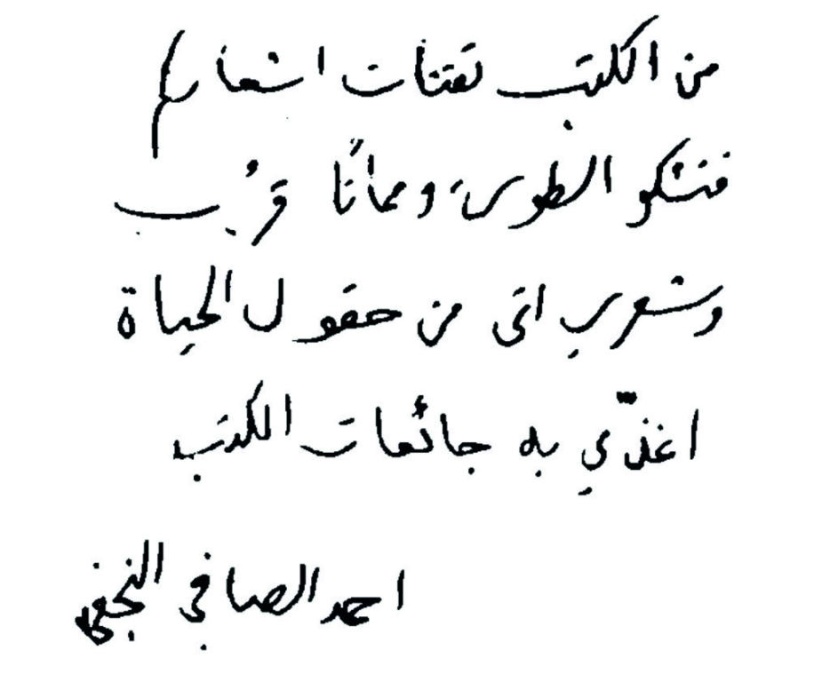 من الكتب تقتات اشعارهم
فتشكو الطوى، ومماتًا قرُب
وشعري اتى من حقول الحياة
اغذّي به جائعات الكتب
احمد الصافي النجفي